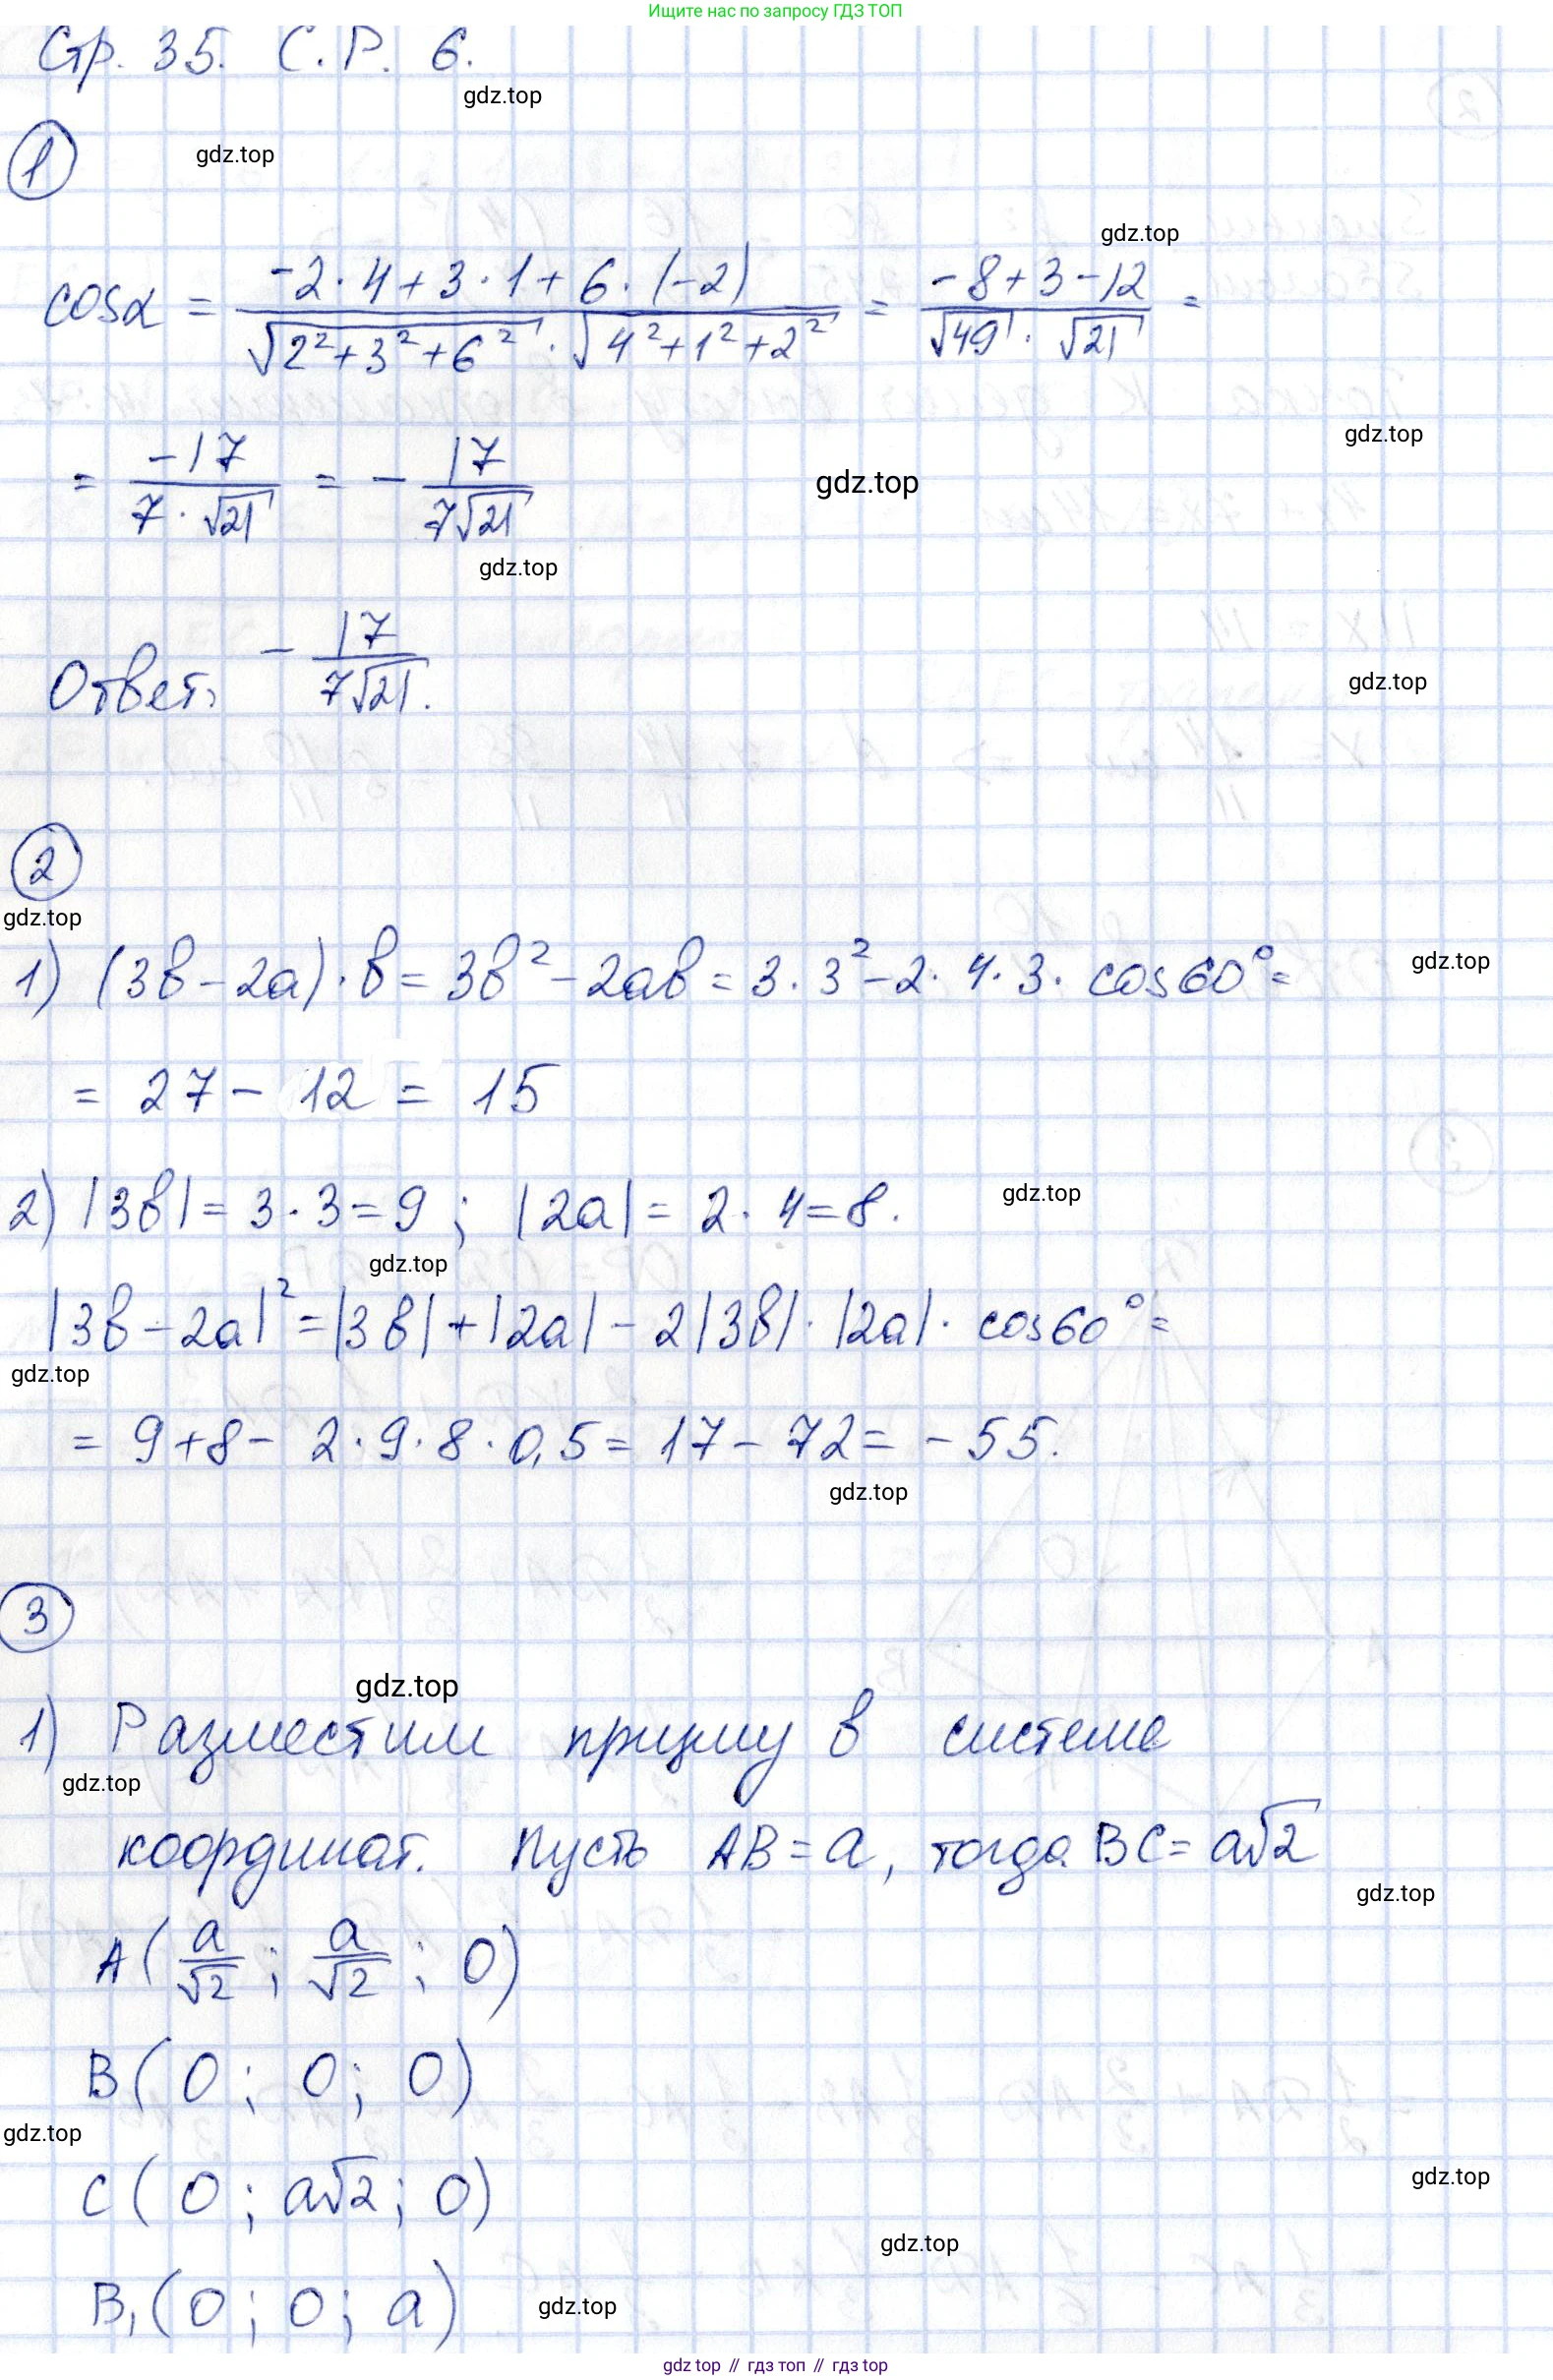 Ищите нас по запросу ГДЗ ТОП
Стр. 35. С.Р. 6.
gdz.top
1
gdz.top
gdz.top
cosα = (-2·4+3·1+6·(-2))/(√(2²+3²+6²)·√(4²+1²+2²)) = (-8+3-12)/(√49·√21) =
gdz.top
= -17/(7·√21) = -17/(7√21)
gdz.top
gdz.top
Ответ: -17/(7√21).
gdz.top
2
gdz.top
1) (3в-2а)·в = 3в²-2ав = 3·3²-2·4·3·cos60°=
gdz.top
= 27 - 12 = 15
2) |3в| = 3·3=9; |2а| = 2·4=8.
gdz.top
gdz.top
|3в-2а|² = |3в|+|2а|-2|3в|·|2а|·cos60°=
gdz.top
= 9+8-2·9·8·0,5 = 17-72 = -55.
gdz.top
3
gdz.top
1) Разместим призму в системе
gdz.top
координат. Пусть AB=a, тогда BC=a√2
gdz.top
A(a/√2; a/√2; 0)
B(0; 0; 0)
gdz.top
C(0; a√2; 0)
gdz.top
gdz.top
B₁(0; 0; a)
gdz.top
gdz top // гдз топ // гдз top